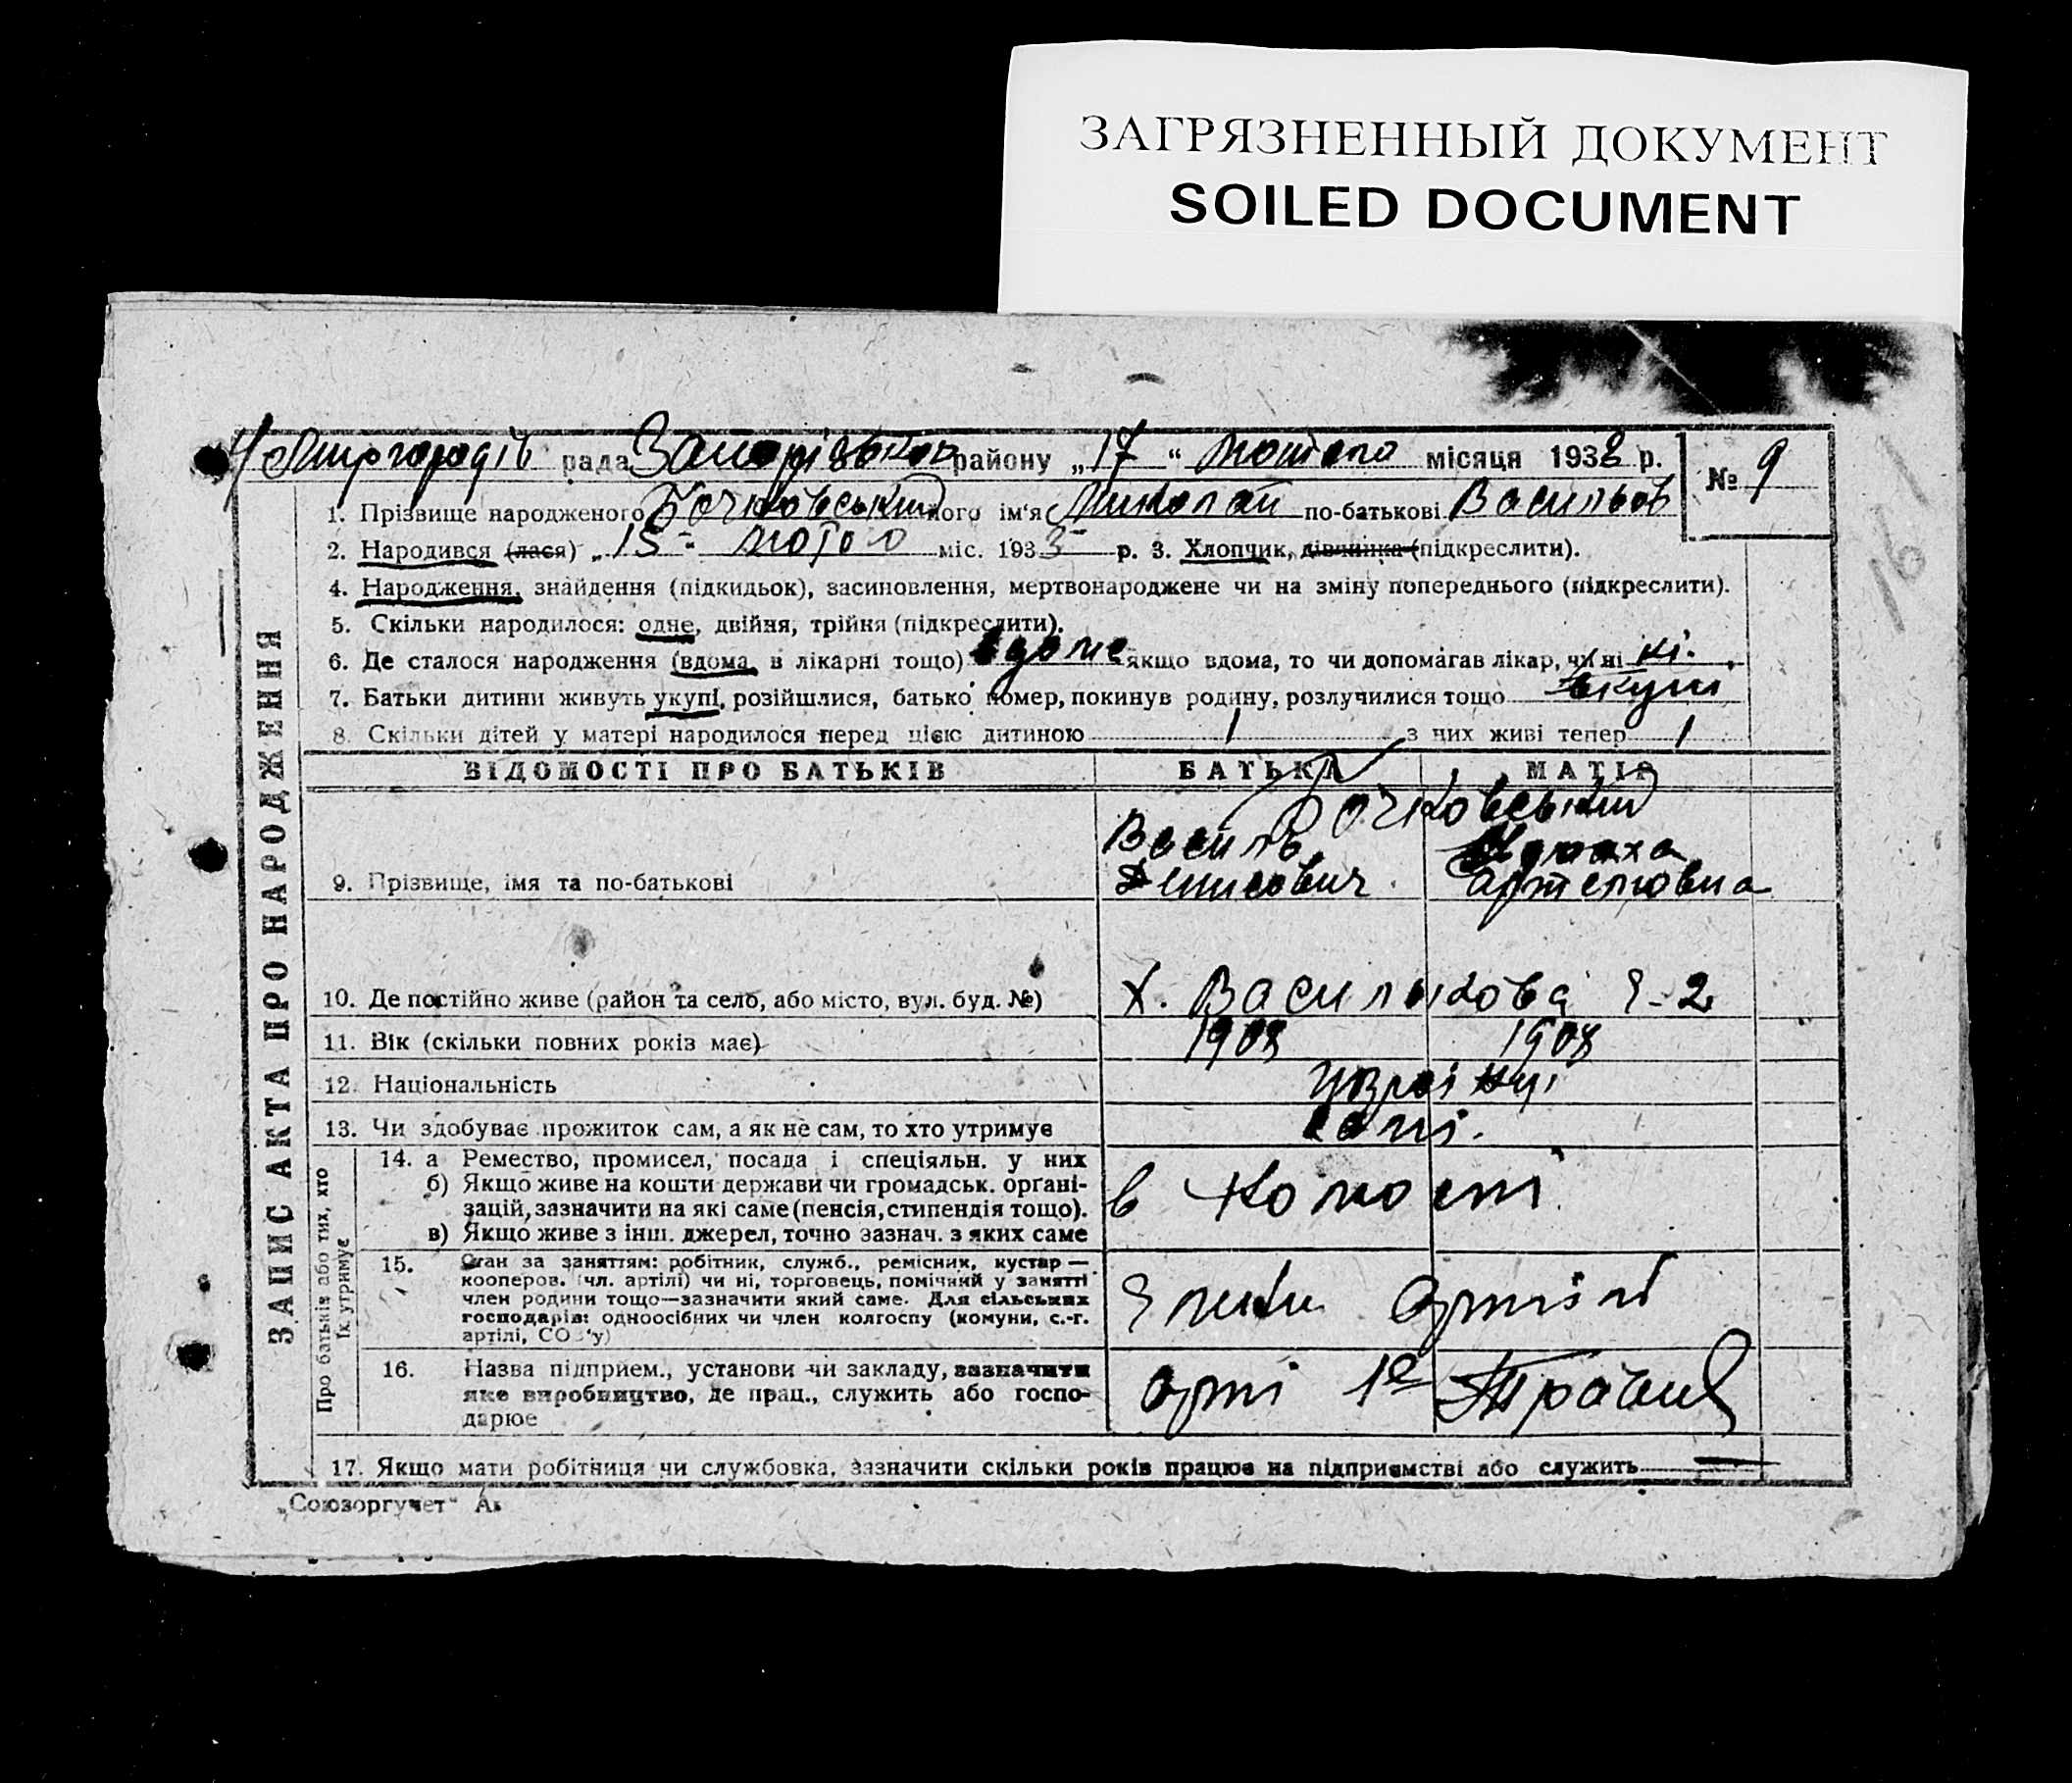 ЗАГРЯЗНЕННЫЙ ДОКУМЕНТ
SOILED DOCUMENT
рада району „17“ лютого місяця 193 р. № 9
1. Прізвище народженого Бочковський його ім'я Миколай по-батькові Васильов
2. Народився (лася) „15 - лютого міс. 193 р. 3. Хлопчик, дівчинка (підкреслити).
4. Народження, знайдення (підкидьок), засиновлення, мертвонароджене чи на зміну попереднього (підкреслити).
5. Скільки народилося: одне, двійня, трійня (підкреслити).
6. Де сталося народження (вдома, в лікарні тощо) вдоме якщо вдома, то чи допомагав лікар, чи ні ні.
7. Батьки дитини живуть укупі, розійшлися, батько помер, покинув родину, розлучилися тощо вкупі
8. Скільки дітей у матері народилося перед цією дитиною 1 з них живі тепер 1
ЗАПИС АКТА ПРО НАРОДЖЕННЯ
ВІДОМОСТІ ПРО БАТЬКІВ БАТЬКА МАТІР
Бочковський
Василь
9. Прізвище, імя та по-батькові Денисович Артемовна
10. Де постійно живе (район та село, або місто, вул. буд. №) х. Василькова 2
11. Вік (скільки повних років має) 1908 1908
12. Національність українці
13. Чи здобуває прожиток сам, а як не сам, то хто утримує самі.
Про батьків або тих, хто їх утримує
14. а Ремество, промисел, посада і спеціяльн. у них
б) Якщо живе на кошти держави чи громадськ. організацій, зазначити на які саме (пенсія, стипендія тощо).
в) Якщо живе з інш. джерел, точно зазнач. з яких саме
в
15. Стан за заняттям: робітник, служб., ремісник, кустар—
кооперов. (чл. артілі) чи ні, торговець, помічний у занятті
член родини тощо—зазначити який саме. Для сільських
господарів: одноосібних чи член колгоспу (комуни, с.-г.
артілі, СОЗ'у)
артілі
16. Назва підприєм., установи чи закладу, зазначити
яке виробництво, де прац., служить або госпо-
дарює
арті
17. Якщо мати робітниця чи службовка, зазначити скільки років працює на підприємстві або служить —
„Союзоргучет“
161